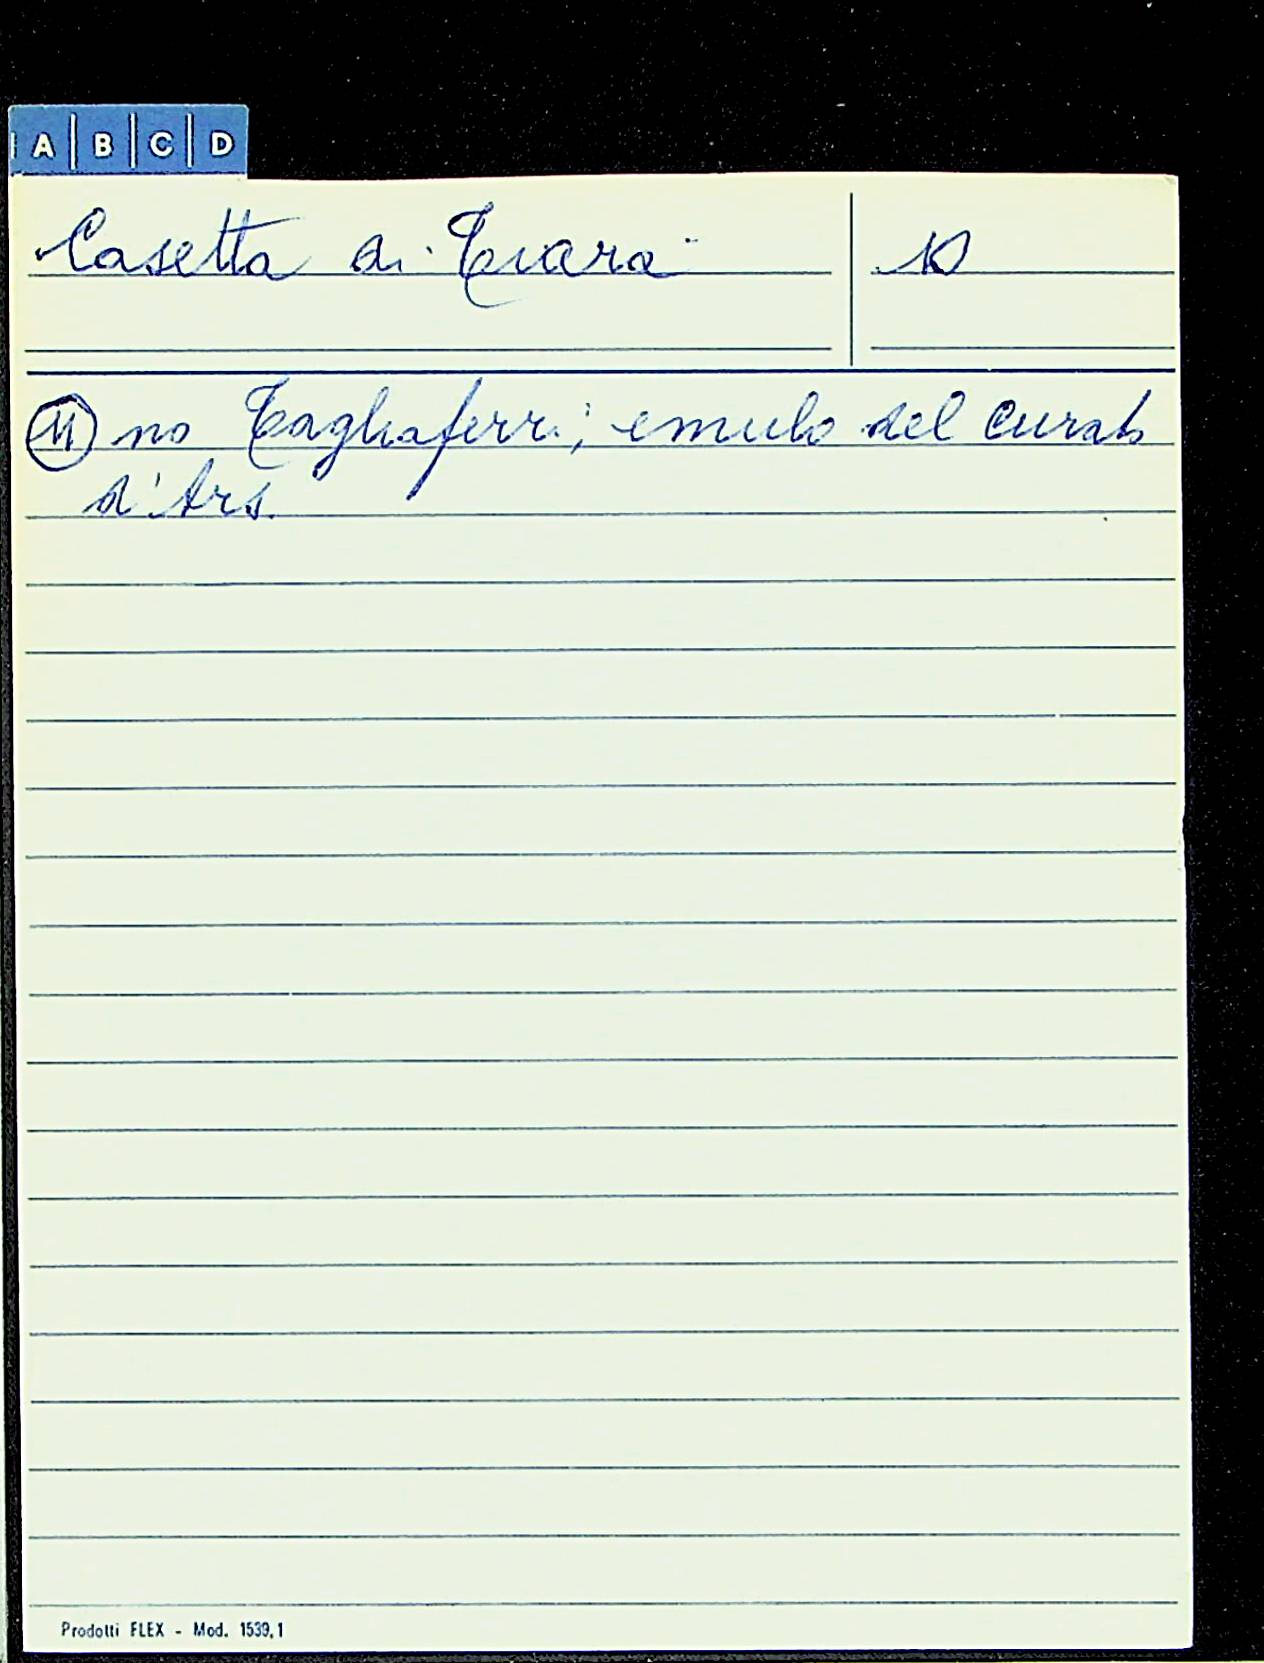 A B C D
Casetta di Tiara
D
11 no Tagliaferri; emulo del curato
d'Ars.
Prodotti FLEX - Mod. 1539,1